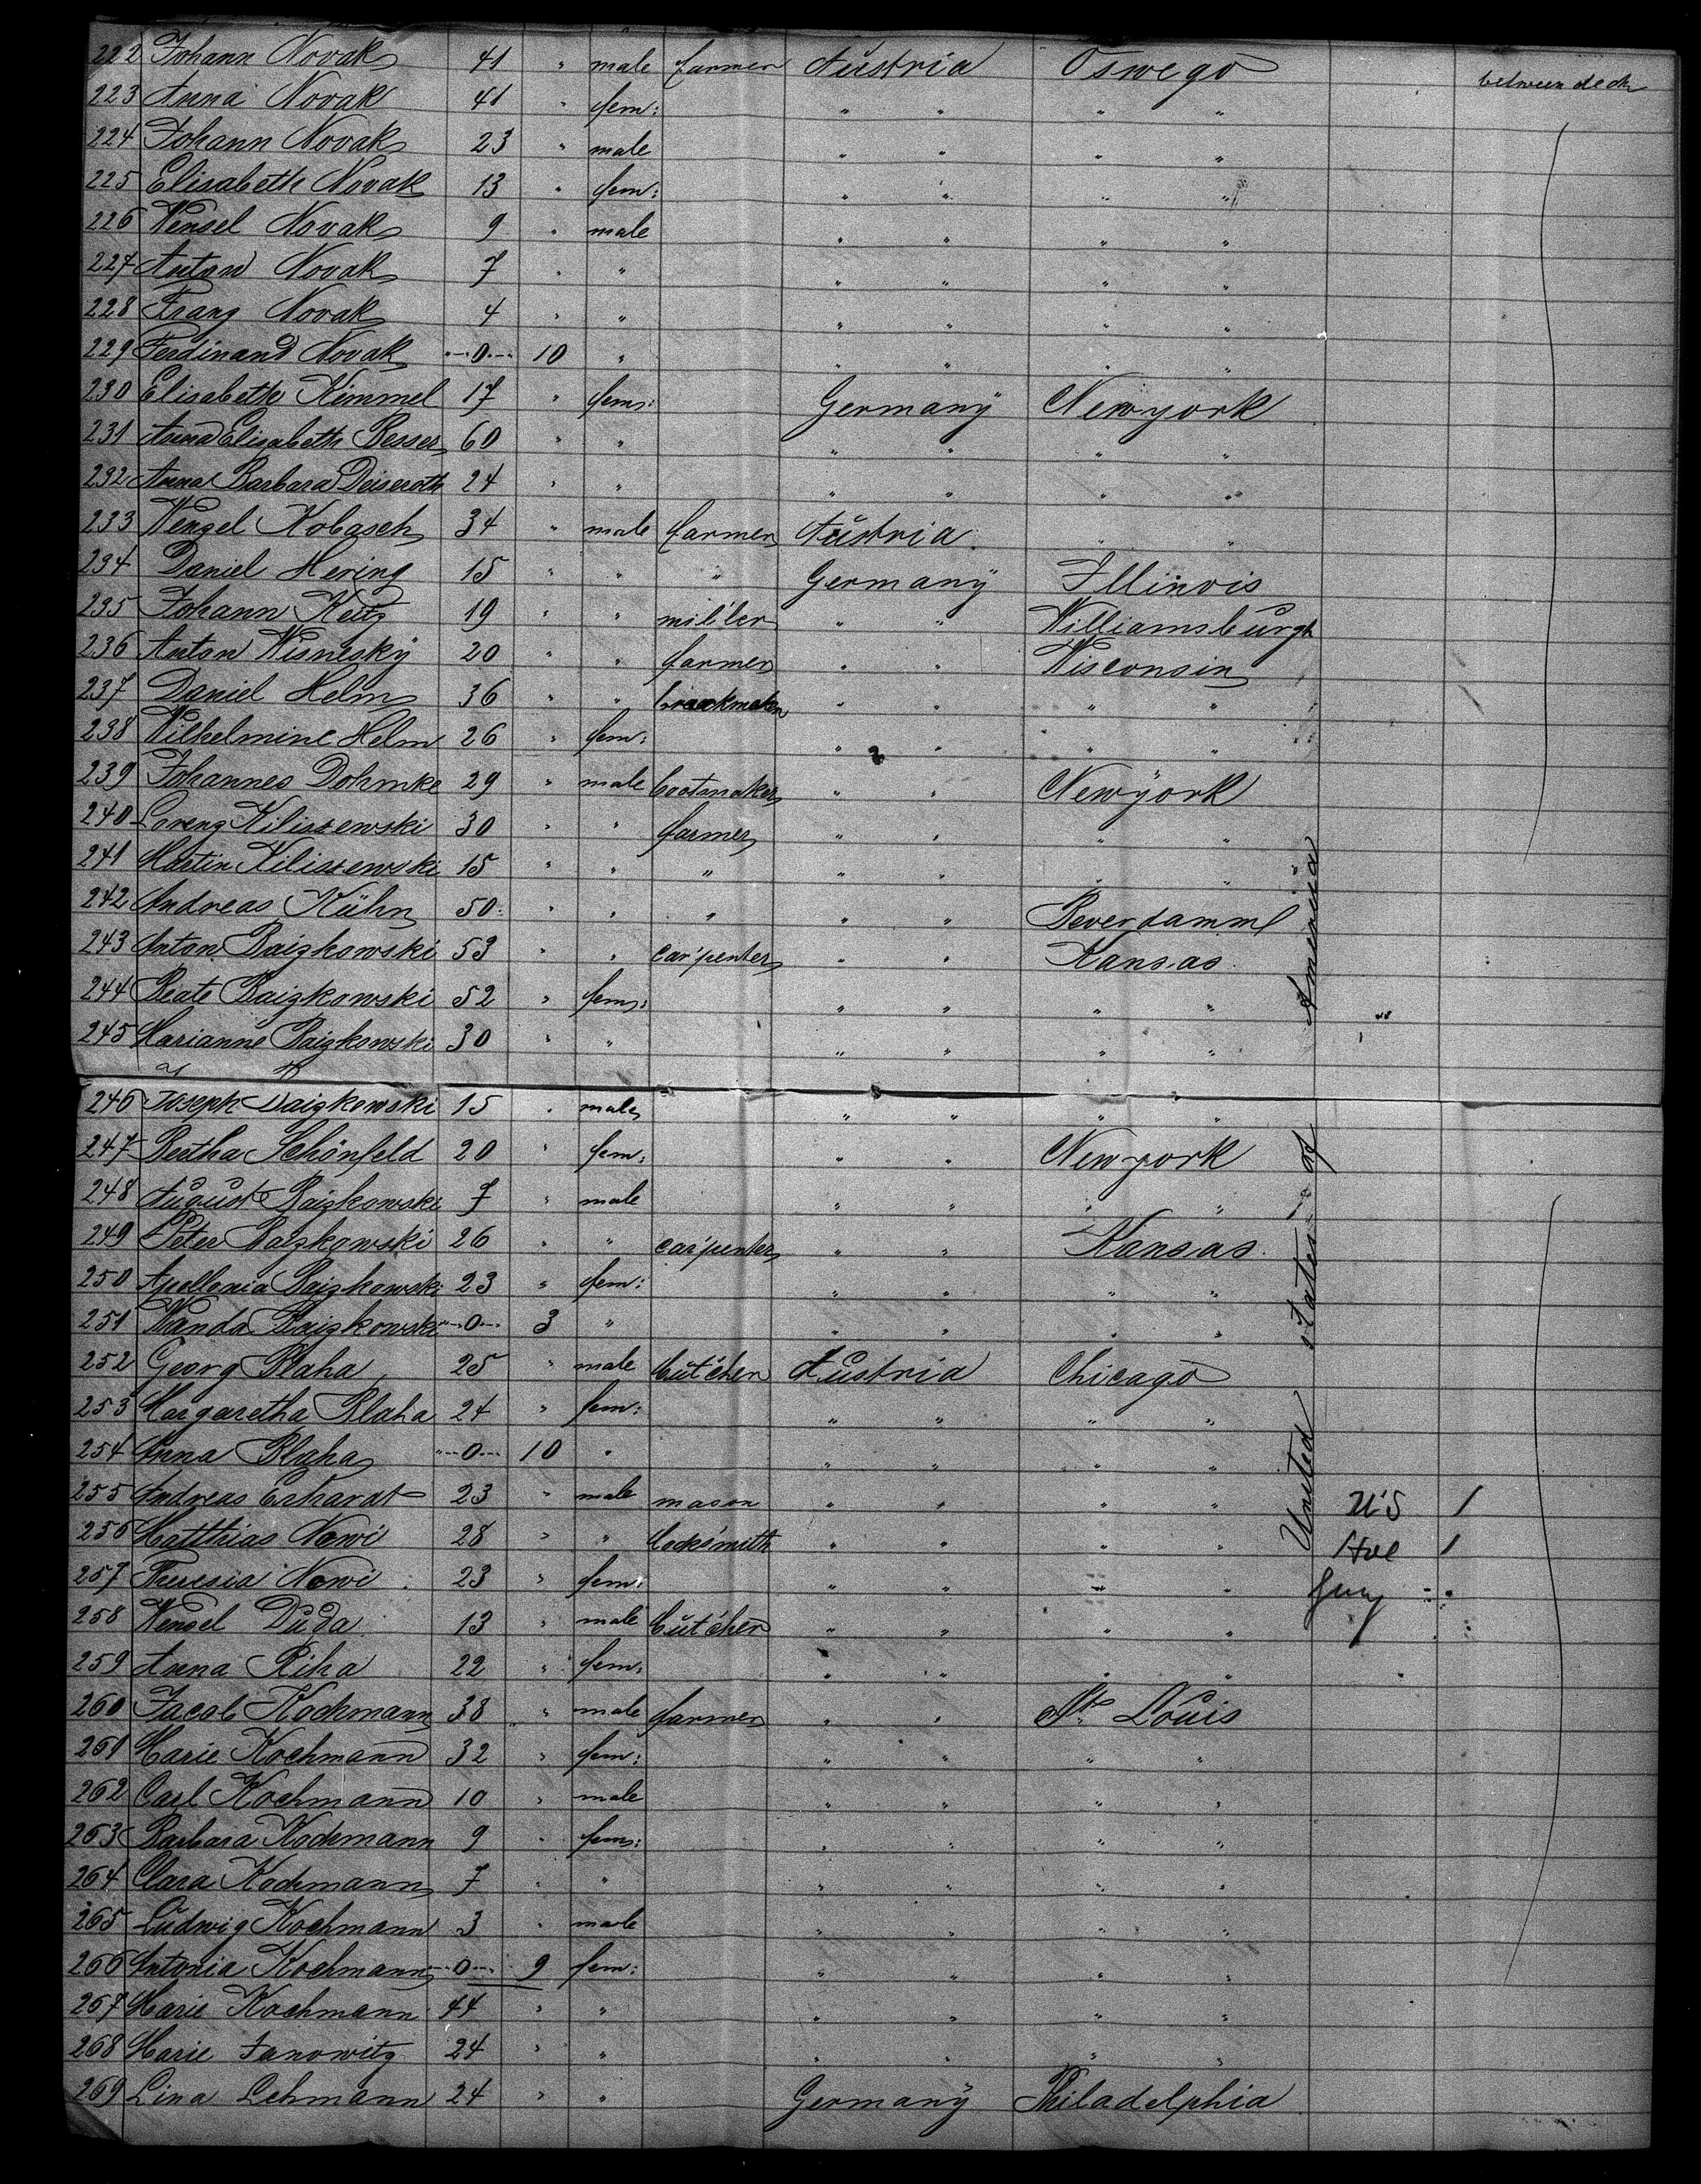 222 Johann Novak 41 " male farmer Austria Oswego between deck
223 Anna Novak 41 " fem: " " " "
224 Johann Novak 23 " male " " " "
225 Elisabeth Novak 13 " fem: " " " "
226 Wensel Novak 9 " male " " " "
227 Anton Novak 7 " " " " " "
228 Franz Novak 4 " " " " " "
229 Ferdinand Novak "--0-- 10 " " " " "
230 Elisabeth Kimmel 17 " fem: Germany Newyork
231 Anna Elisabeth Besser 60 " " " " " "
232 Anna Barbara Deiseroth 24 " " " " " "
233 Wenzel Kobasch 34 " male farmer Austria " "
234 Daniel Hering 15 " " " Germany Illinois
235 Johann Keitz 19 " " miller " " Williamsburgh
236 Anton Wisnesky 20 " " farmer " " Wisconsin
237 Daniel Helm 36 " " " " " "
238 Wilhelmine Helm 26 " fem: " " " "
239 Johannes Dohmke 29 " male bootmaker " " Newyork
240 Lorenz Kiliszewski 30 " " farmer " " " "
241 Martin Kiliszewski 15 " " " " " " "
242 Andreas Kühn 50 " " " " " Beverdamml
243 Anton Baizkowski 53 " " carpenter " " Kansas
244 Beate Baizkowski 52 " fem: " " " "
245 Marianne Baizkowski 30 " " " " " "
246 Joseph Baizkowski 15 " male " " " "
247 Bertha Schönfeld 20 " fem: " " Newyork
248 August Baizkowski 7 " male " " " "
249 Peter Baizkowski 26 " " carpenter " " Kansas
250 Apollonia Baizkowski 23 " fem: " " " "
251 Wanda Baizkowski "--0-- 3 " " " " "
252 Georg Blaha 25 " male butcher Austria Chicago
253 Margaretha Blaha 24 " fem: " " " "
254 Anna Blaha "--0-- 10 " " " " "
255 Andreas Erhardt 23 " male mason " " " " U'S /
256 Matthias Nowi 28 " " locksmith " " " " /
257 Theresia Nowi 23 " fem: " " " "
258 Wensel Duda 13 " male butcher " " " "
259 Anna Riha 22 " fem: " " " "
260 Jacob Kochmann 38 " male farmer " " St. Louis
261 Marie Kochmann 32 " fem: " " " "
262 Carl Kochmann 10 " male " " " "
263 Barbara Kochmann 9 " fem: " " " "
264 Clara Kochmann 7 " " " " " "
265 Ludwig Kochmann 3 " male " " " "
266 Antonia Kochmann --0-- 9 fem: " " " "
267 Marie Kochmann 44 " " " " " "
268 Marie Janowitz 24 " " " " " "
269 Lina Lehmann 24 " " Germany Philadelphia
United States of America